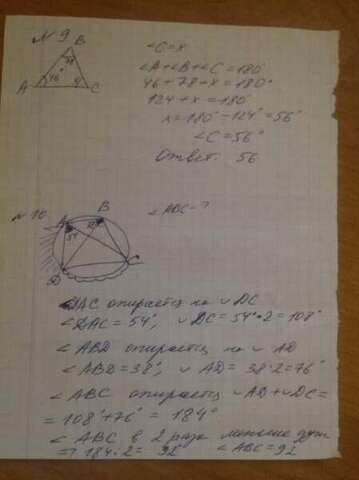 № 9
B
78
A 46 C
∠C = x
∠A+∠B+∠C=180°
46+78+x=180°
124+x=180°
x=180°-124°=56°
∠C=56°
Ответ: 56
№ 10
∠ABC-?
A B
54°
D C
∠DAC опирается на ∪ DC
∠DAC=54°, ∪DC=54°·2=108°
∠ABD опирается на ∪ AD
∠ABD=38°, ∪AD=38·2=76°
∠ABC опирается ∪AD+∪DC=
=108°+76°=184°
∠ABC в 2 раза меньше дуги
=> 184:2= 92° ∠ABC=92